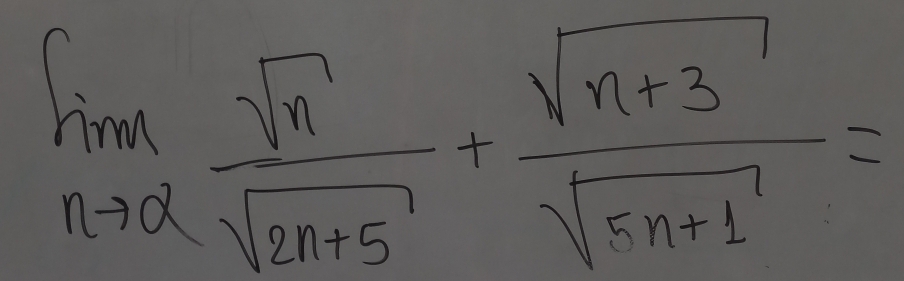 lim n→α √n / √2n+5 + √n+3 / √5n+1 =